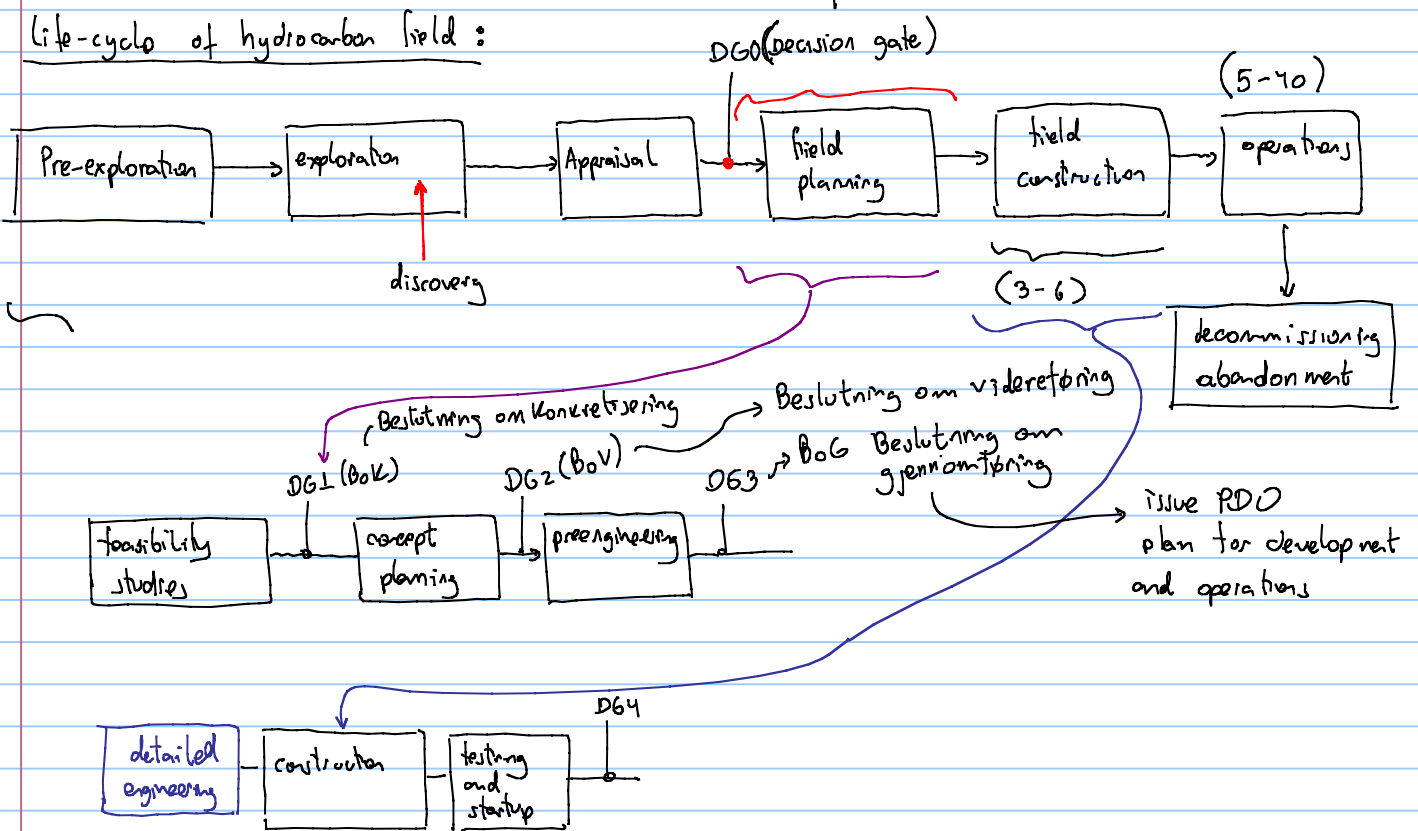 Life-cycle of hydrocarbon field :
DG0 (Decision gate)
(5-40)
Pre-exploration
exploration
Appraisal
field
planning
field
construction
operations
discovery
(3-6)
decommissioning
abandonment
Beslutning om Konkretisering
Beslutning om videreføring
DG1 (BoK)
DG2 (BoV)
DG3
BoG Beslutning om
gjennomføring
issue PDO
plan for development
and operations
feasibility
studies
concept
planning
preengineering
DG4
detailed
engineering
construction
testing
and
startup